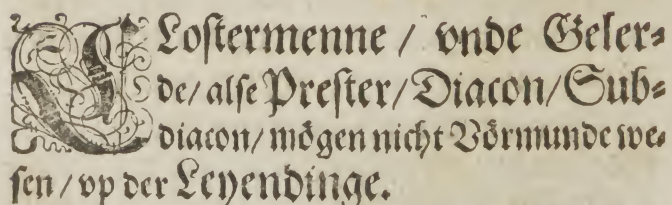 CLostermenne / vnde Geler⸗
de / alse Prester / Diacon / Sub⸗
diacon / mögen nicht Vörmunde we⸗
sen / vp der Leyendinge.